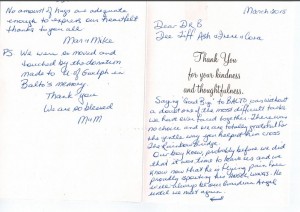 March 2015
Dear Dr B
Dee Tiff Ash
Thank You
for your kindness
and thoughtfulness.
Saying "Good Bye" to BALTO was without
a doubt one of the most difficult tasks
we have ever faced together. There was
no choice and we are totally grateful for
the gentle way you helped him cross
The Rainbow Bridge.
Our boy knew, probably before we did
that it was time to leave us and we
know now that he is flying pain free
proudly sporting his wings. He
will always be our Guardian Angel
until we meet again
No amount of hugs are adequate
enough to express our heartfelt
thanks to you all
Mar & Mike
PS We were so moved and
touched by the donation
made to U of Guelph in
Balto's memory
Thank You
We are so blessed
M & M